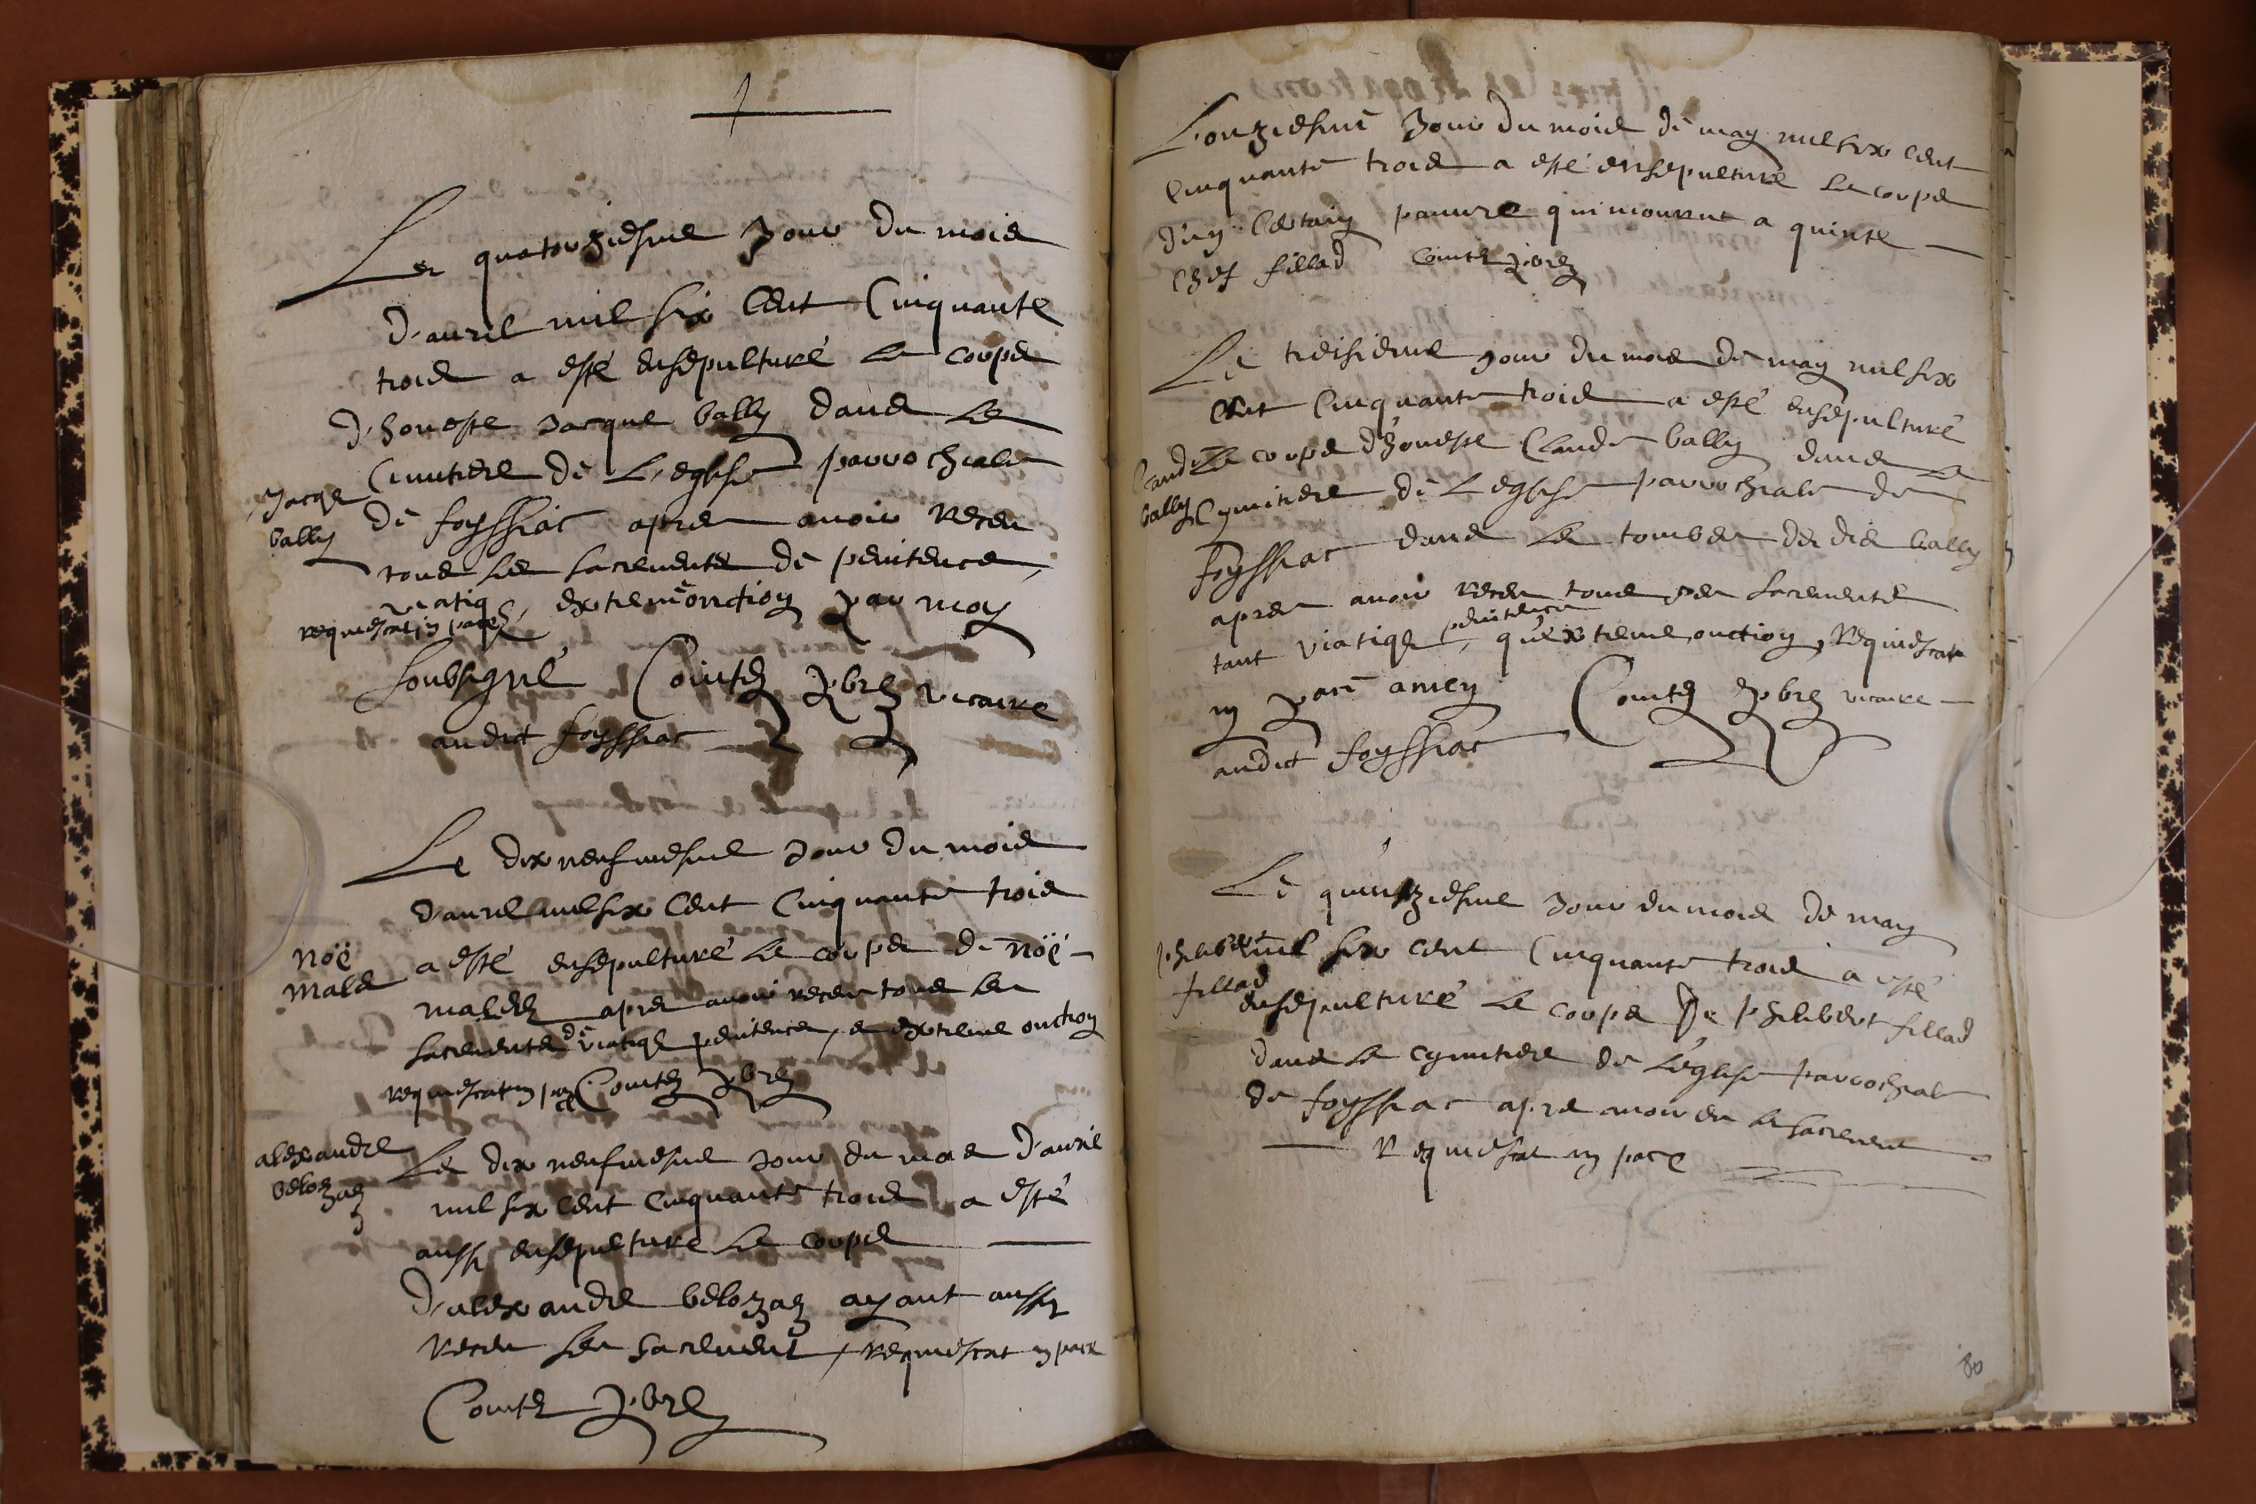 Le quatorziesme Jour du mois
d'avril mil six Cent Cinquante
trois a esté ensepulturé le corps
d'honeste Jacque bally dans le
Cimitiere de L'eglise parrochiale
Jacqe
bally
de foyssiac apres avoir receu
tous les sacrements de penitence,
viatiqe, extremonction par moy
requiescat in pace
soubsigné Comte pbre vicaire
audict foyssiac
Le dix neufviesme Jour du mois
d'avril mil six Cent Cinquante trois
Noë
Male
a esté ensepulturé le corps de Noë
male apres avoir receu tous les
sacrements de viatiqe penitence, e extreme onction
requiescat in pace Comte pbre
alexandre
velozae
Le dix neufviesme Jour du mois d'avril
mil six Cent Cinquante trois a esté
aussi ensepulture le corps
d'alexandre velozae ayant aussy
receu les sacrement, requiescat in pace
Comte pbre
L'onziesme Jour du mois de may mil six Cent
Cinquante trois a esté ensepulturé le corps
d'un Certain pauvre qui mourut a
Chez fillad Comte pbre
Le treisieme Jour du mois de may mil six
Cent Cinquante trois a esté ensepulturé
Claude
bally
le corps d'honeste Claude bally dans le
Cymitiere de L'eglise parrochiale de
foyssiac dans le tombes des dis bally
apres avoir receu tous ses sacrements
tant viatiqe, penitence qu'extreme onction, Requiescat
in pace amen Comte pbre vicaire
audict foyssiac
Le quinziesme Jour du mois de may
philibert
fillad
mil six cent Cinquante trois a esté
ensepulturé le corps De philibert fillad
dans le cymitiere de L'eglise parrochiale
de foyssiac apres avoir eu le sacrement
Requiescat in pace
80